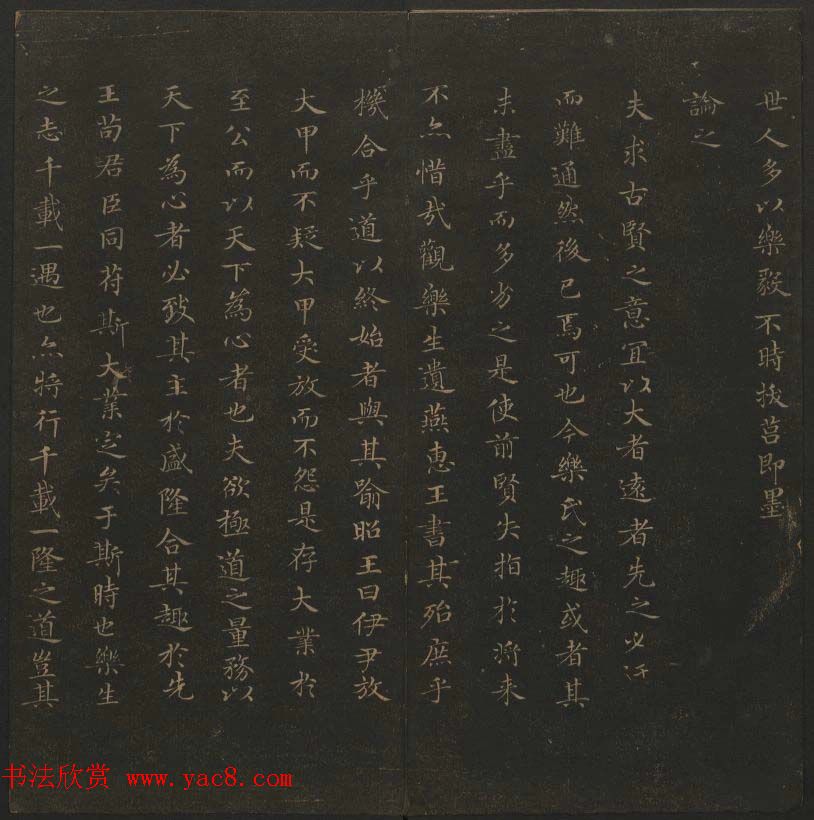 世人多以樂毅不時拔莒即墨
論之
夫求古賢之意宜以大者遠者先之必迂
而難通然後已焉可也今樂氏之趣或者其
未盡乎而多劣之是使前賢失指於將来
不亦惜哉觀樂生遺燕惠王書其殆庶乎
機合乎道以終始者與其喻昭王曰伊尹放
大甲而不疑大甲受放而不怨是存大業於
至公而以天下為心者也夫欲極道之量務以
天下為心者必致其主於盛隆合其趣於先
王苟君臣同符斯大業定矣于斯時也樂生
之志千載一遇也亦將行千載一隆之道豈其
书法欣赏 www.yac8.com